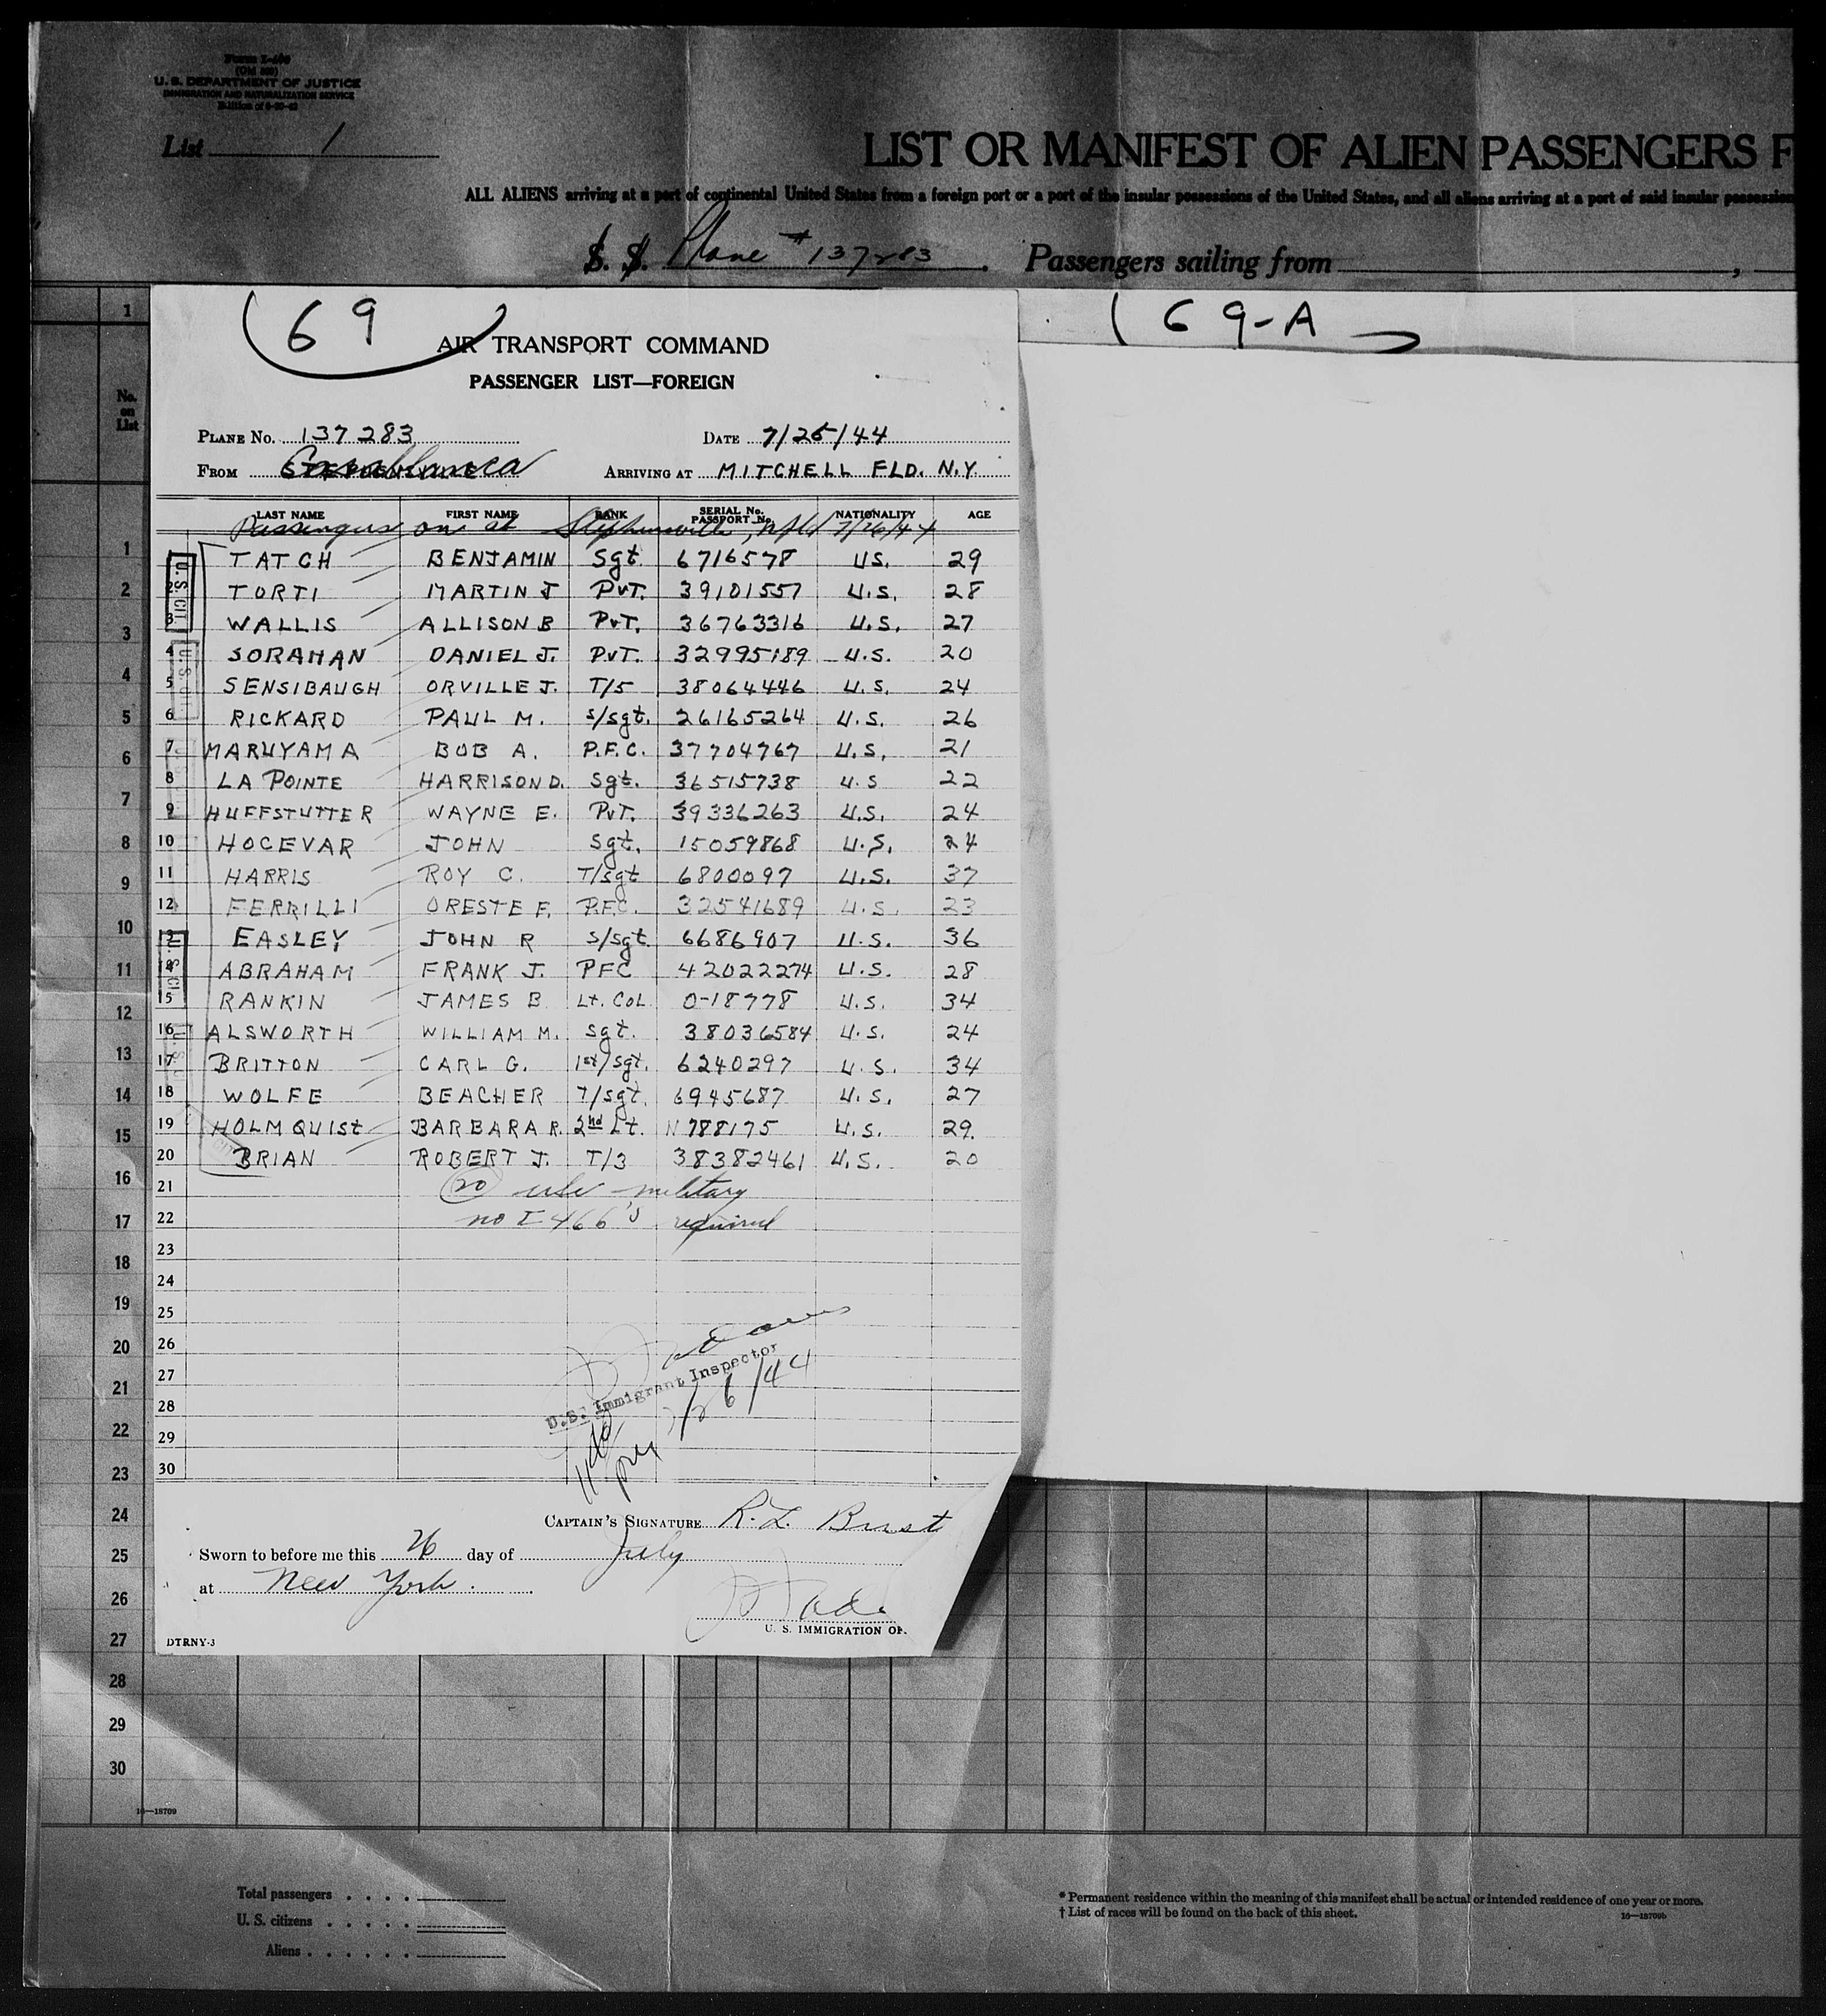 Form I-466
U. S. DEPARTMENT OF JUSTICE
IMMIGRATION AND NATURALIZATION SERVICE
List 1
LIST OR MANIFEST OF ALIEN PASSENGERS F
ALL ALIENS arriving at a port of continental United States from a foreign port or a port of the insular possessions of the United States, and all aliens arriving at a port of said insular possession
S. S. Plane # 137283 . Passengers sailing from ,
69
69-A
AIR TRANSPORT COMMAND
PASSENGER LIST—FOREIGN
PLANE No. 137283 DATE 7/25/44
FROM Casablanca ARRIVING AT MITCHELL FLD. N.Y.
LAST NAME FIRST NAME RANK SERIAL No. PASSPORT No. NATIONALITY AGE
Passengers on at Stephensville, Nfld 7/26/44
1 TATCH BENJAMIN Sgt. 6716578 U.S. 29
2 TORTI MARTIN J PVT. 39101557 U.S. 28
3 WALLIS ALLISON B PVT. 36763316 U.S. 27
4 SORAHAN DANIEL J. PVT. 32995189 U.S. 20
5 SENSIBAUGH ORVILLE J. T/5 38064446 U.S. 24
6 RICKARD PAUL M. S/Sgt. 26165264 U.S. 26
7 MARUYAMA BOB A. P.F.C. 37704767 U.S. 21
8 LA POINTE HARRISON D. Sgt. 36515738 U.S 22
9 HUFFSTUTTER WAYNE E. PVT. 39336263 U.S. 24
10 HOCEVAR JOHN Sgt. 15059868 U.S. 24
11 HARRIS ROY C. T/Sgt 6800097 U.S. 37
12 FERRILLI ORESTE F. P.F.C. 32541689 U.S. 23
13 EASLEY JOHN R S/Sgt. 6686907 U.S. 36
14 ABRAHAM FRANK J. PFC 42022274 U.S. 28
15 RANKIN JAMES B Lt. COL 0-18778 U.S. 34
16 ALSWORTH WILLIAM M. Sgt. 38036584 U.S. 24
17 BRITTON CARL G. 1st/Sgt. 6240297 U.S. 34
18 WOLFE BEACHER T/Sgt. 6945687 U.S. 27
19 HOLMQUIST BARBARA R. 2nd Lt. N 788175 U.S. 29.
20 BRIAN ROBERT J. T/3 38382461 U.S. 20
21 20 USC military
22 no I 466's required
23
24
25
26
27
28
29
30
U.S. CIT.
U.S. Immigrant Inspector
7/26/44
CAPTAIN'S SIGNATURE R. L. Burst
Sworn to before me this 26 day of July
at New York.
U. S. IMMIGRATION OF.
DTRNY-3
1
No. on List
1
2
3
4
5
6
7
8
9
10
11
12
13
14
15
16
17
18
19
20
21
22
23
24
25
26
27
28
29
30
16—18709
Total passengers . . . .
U. S. citizens . . . . .
Aliens . . . . . .
* Permanent residence within the meaning of this manifest shall be actual or intended residence of one year or more.
† List of races will be found on the back of this sheet.
16—18709b